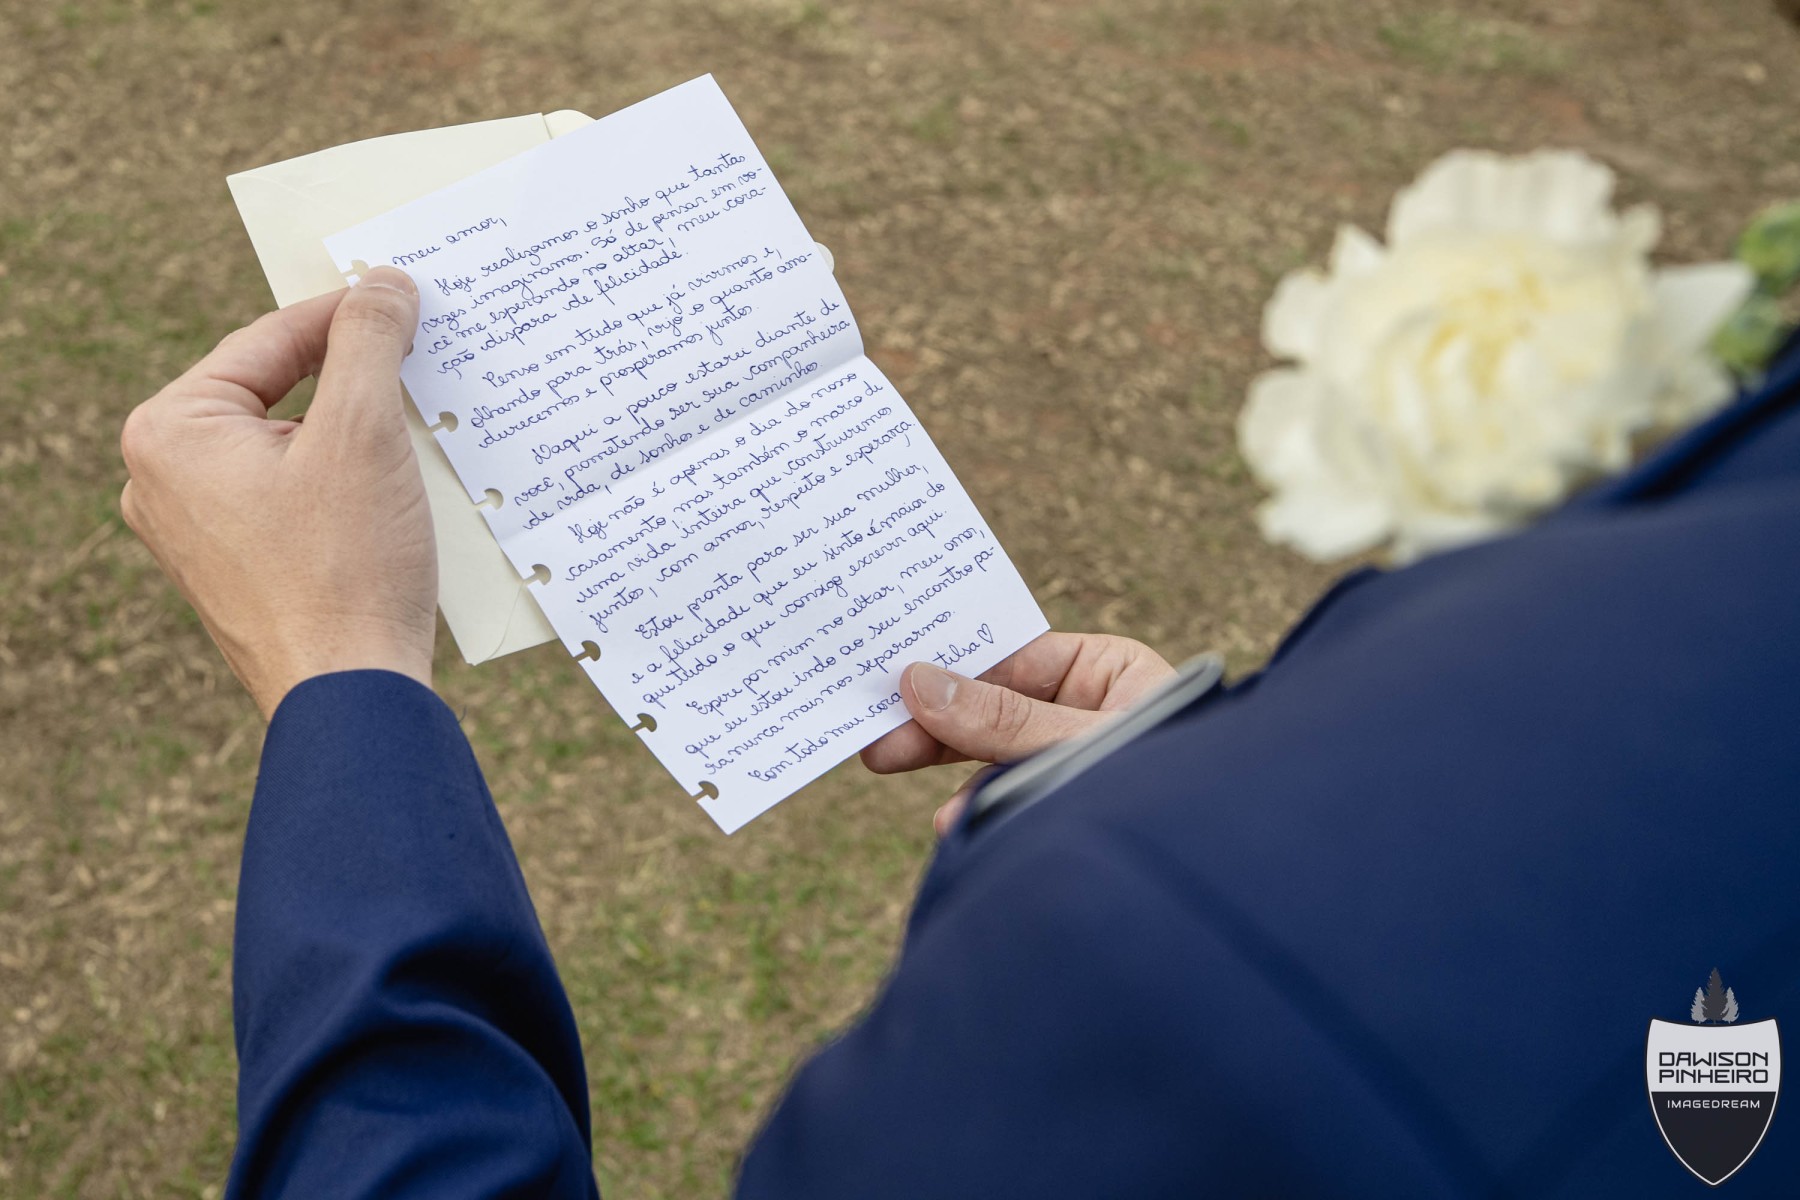 Meu amor,
Hoje realizamos o sonho que tantas
vezes imaginamos. Só de pensar em vo-
cê me esperando no altar, meu cora-
ção dispara de felicidade!
Penso em tudo que já vivemos e,
olhando para trás, vejo o quanto ama-
durecemos e prosperamos juntos.
Daqui a pouco estarei diante de
você, prometendo ser sua companheira
de vida, de sonhos e de caminho.
Hoje não é apenas o dia do nosso
casamento mas também o marco de
uma vida inteira que construiremos
juntos, com amor, respeito e esperança.
Estou pronta para ser sua mulher,
e a felicidade que eu sinto é maior do
que tudo o que consigo escrever aqui.
Espere por mim no altar, meu amor,
que eu estou indo ao seu encontro pa-
ra nunca mais nos separarmos.
Com todo meu cora tilsa ♡
DAWISON
PINHEIRO
IMAGEDREAM